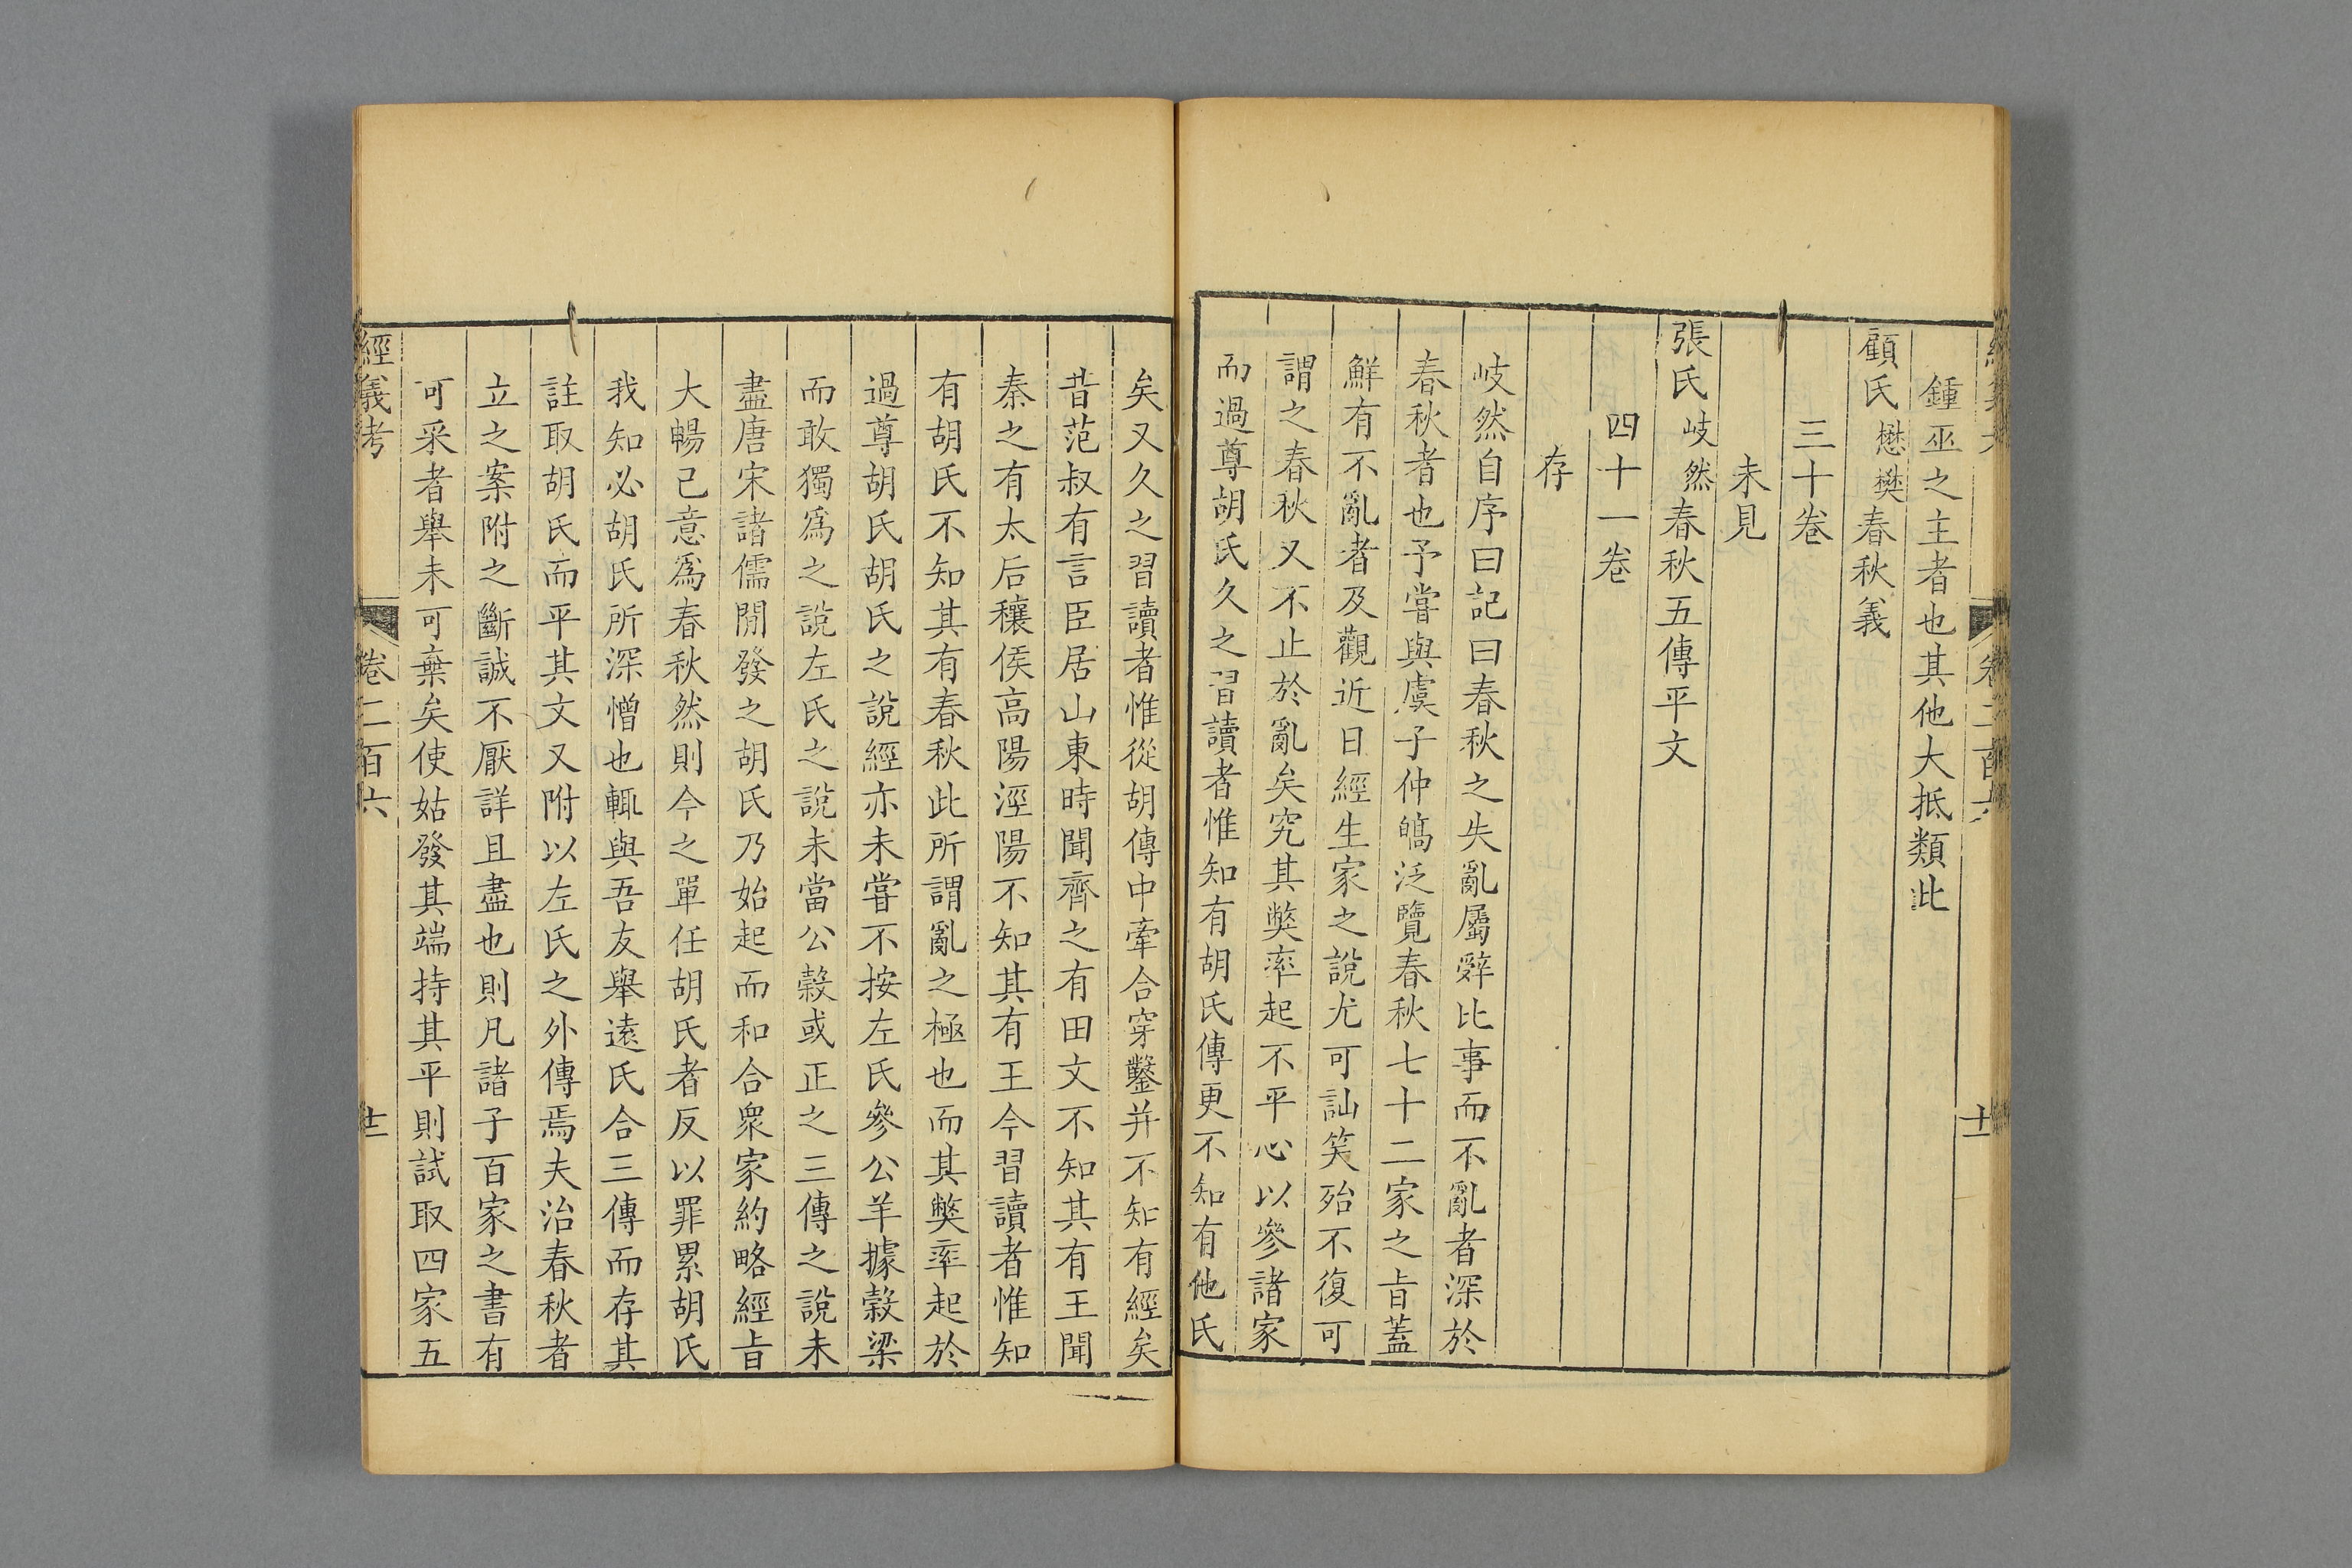 鍾巫之主者也其他大抵類此
顧氏懋樊春秋義
三十卷
未見
張氏岐然春秋五傳平文
四十一卷
存
岐然自序曰記曰春秋之失亂屬辭比事而不亂者深於
春秋者也予嘗與虞子仲皜泛覽春秋七十二家之㫖蓋
鮮有不亂者及觀近日經生家之說尤可訕笑殆不復可
謂之春秋又不止於亂矣究其獘率起不平心以參諸家
而過尊胡氏久之習讀者惟知有胡氏傳更不知有他氏
矣又久之習讀者惟從胡傳中牽合穿鑿并不知有經矣
昔范叔有言臣居山東時聞齊之有田文不知其有王聞
秦之有太后穰侯高陽涇陽不知其有王今習讀者惟知
有胡氏不知其有春秋此所謂亂之極也而其獘率起於
過尊胡氏胡氏之說經亦未嘗不按左氏參公羊據榖梁
而敢獨爲之說左氏之說未當公榖或正之三傳之說未
盡唐宋諸儒閒發之胡氏乃始起而和合衆家約略經㫖
大暢己意爲春秋然則今之單任胡氏者反以罪累胡氏
我知必胡氏所深憎也輒與吾友舉遠氏合三傳而存其
註取胡氏而平其文又附以左氏之外傳焉夫治春秋者
立之案附之斷誠不厭詳且盡也則凡諸子百家之書有
可采者舉未可棄矣使姑發其端持其平則試取四家五
經義考 卷二百六 十二